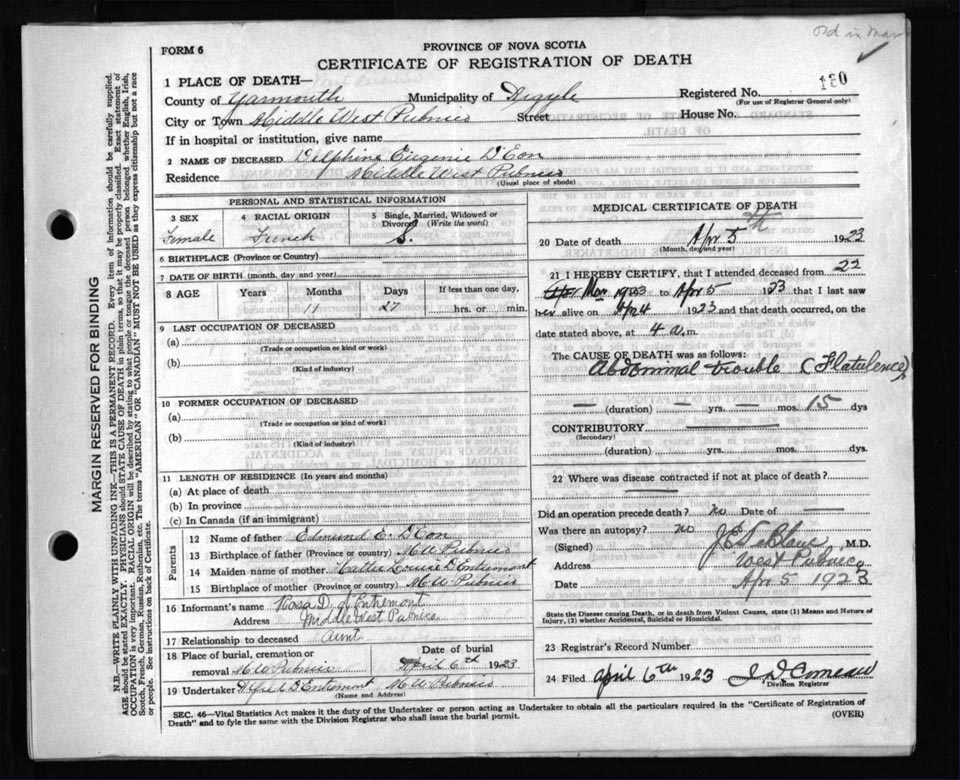 Old in Mar
FORM 6
PROVINCE OF NOVA SCOTIA
CERTIFICATE OF REGISTRATION OF DEATH
1 PLACE OF DEATH—
Registered No. 130
(For use of Registrar General only)
County of Yarmouth Municipality of Argyle
City or Town Middle West Pubnico Street House No.
If in hospital or institution, give name
2 NAME OF DECEASED Delphine Eugenie D'Eon
Residence Middle West Pubnico
(Usual place of abode)
PERSONAL AND STATISTICAL INFORMATION
3 SEX
Female
4 RACIAL ORIGIN
French
5 Single, Married, Widowed or Divorced (Write the word)
S.
6 BIRTHPLACE (Province or Country)
7 DATE OF BIRTH (month, day and year)
8 AGE Years Months Days If less than one day,
11 27 hrs. or min.
9 LAST OCCUPATION OF DECEASED
(a)
(Trade or occupation or kind or work)
(b)
(Kind of industry)
10 FORMER OCCUPATION OF DECEASED
(a)
(Trade or occupation or kind of work)
(b)
(Kind of industry)
11 LENGTH OF RESIDENCE (In years and months)
(a) At place of death
(b) In province
(c) In Canada (if an immigrant)
Parents
12 Name of father Edmund E. D'Eon
13 Birthplace of father (Province or country) M W Pubnico
14 Maiden name of mother Louise D'Entremont
15 Birthplace of mother (Province or country) M W Pubnico
16 Informant's name Rosa D. d'Entremont
Address Middle West Pubnico
17 Relationship to deceased Aunt
18 Place of burial, cremation or removal M W Pubnico
Date of burial
April 6th 1923
19 Undertaker D'Entremont M W Pubnico
(Name and Address)
MEDICAL CERTIFICATE OF DEATH
20 Date of death Apr 5th 1923
(Month, day and year)
21 I HEREBY CERTIFY, that I attended deceased from 22
Mar 1923 to Apr 5 1923 that I last saw
her alive on Apr 4 1923 and that death occurred, on the
date stated above, at 4 a.m.
The CAUSE OF DEATH was as follows:
Abdominal trouble (Flatulence)
— (duration) — yrs. — mos. 15 dys
CONTRIBUTORY
(Secondary)
(duration) yrs. mos. dys.
22 Where was disease contracted if not at place of death?
Did an operation precede death? no Date of —
Was there an autopsy? no
(Signed) J E LeBlanc M.D.
Address West Pubnico
Date Apr 5 1923
State the Disease causing Death, or in death from Violent Causes, state (1) Means and Nature of Injury, (2) whether Accidental, Suicidal or Homicidal.
23 Registrar's Record Number
24 Filed April 6th 1923 J. D. Comeau
Division Registrar
SEC. 46—Vital Statistics Act makes it the duty of the Undertaker or person acting as Undertaker to obtain all the particulars required in the "Certificate of Registration of
Death" and to fyle the same with the Division Registrar who shall issue the burial permit. (OVER)
MARGIN RESERVED FOR BINDING
N.B.—WRITE PLAINLY WITH UNFADING INK—THIS IS A PERMANENT RECORD. Every item of information should be carefully supplied.
AGE should be stated EXACTLY. PHYSICIANS should STATE CAUSE OF DEATH in plain terms, so that it may be properly classified. Exact statement of
OCCUPATION is very important. RACIAL ORIGIN will be described by stating to what people or tongue the deceased person belonged, whether English, Irish,
Scotch, French, German, Russian, Ruthenian, etc. The terms "AMERICAN" OR "CANADIAN" MUST NOT BE USED as they express citizenship but not a race
or people. See instructions on back of Certificate.